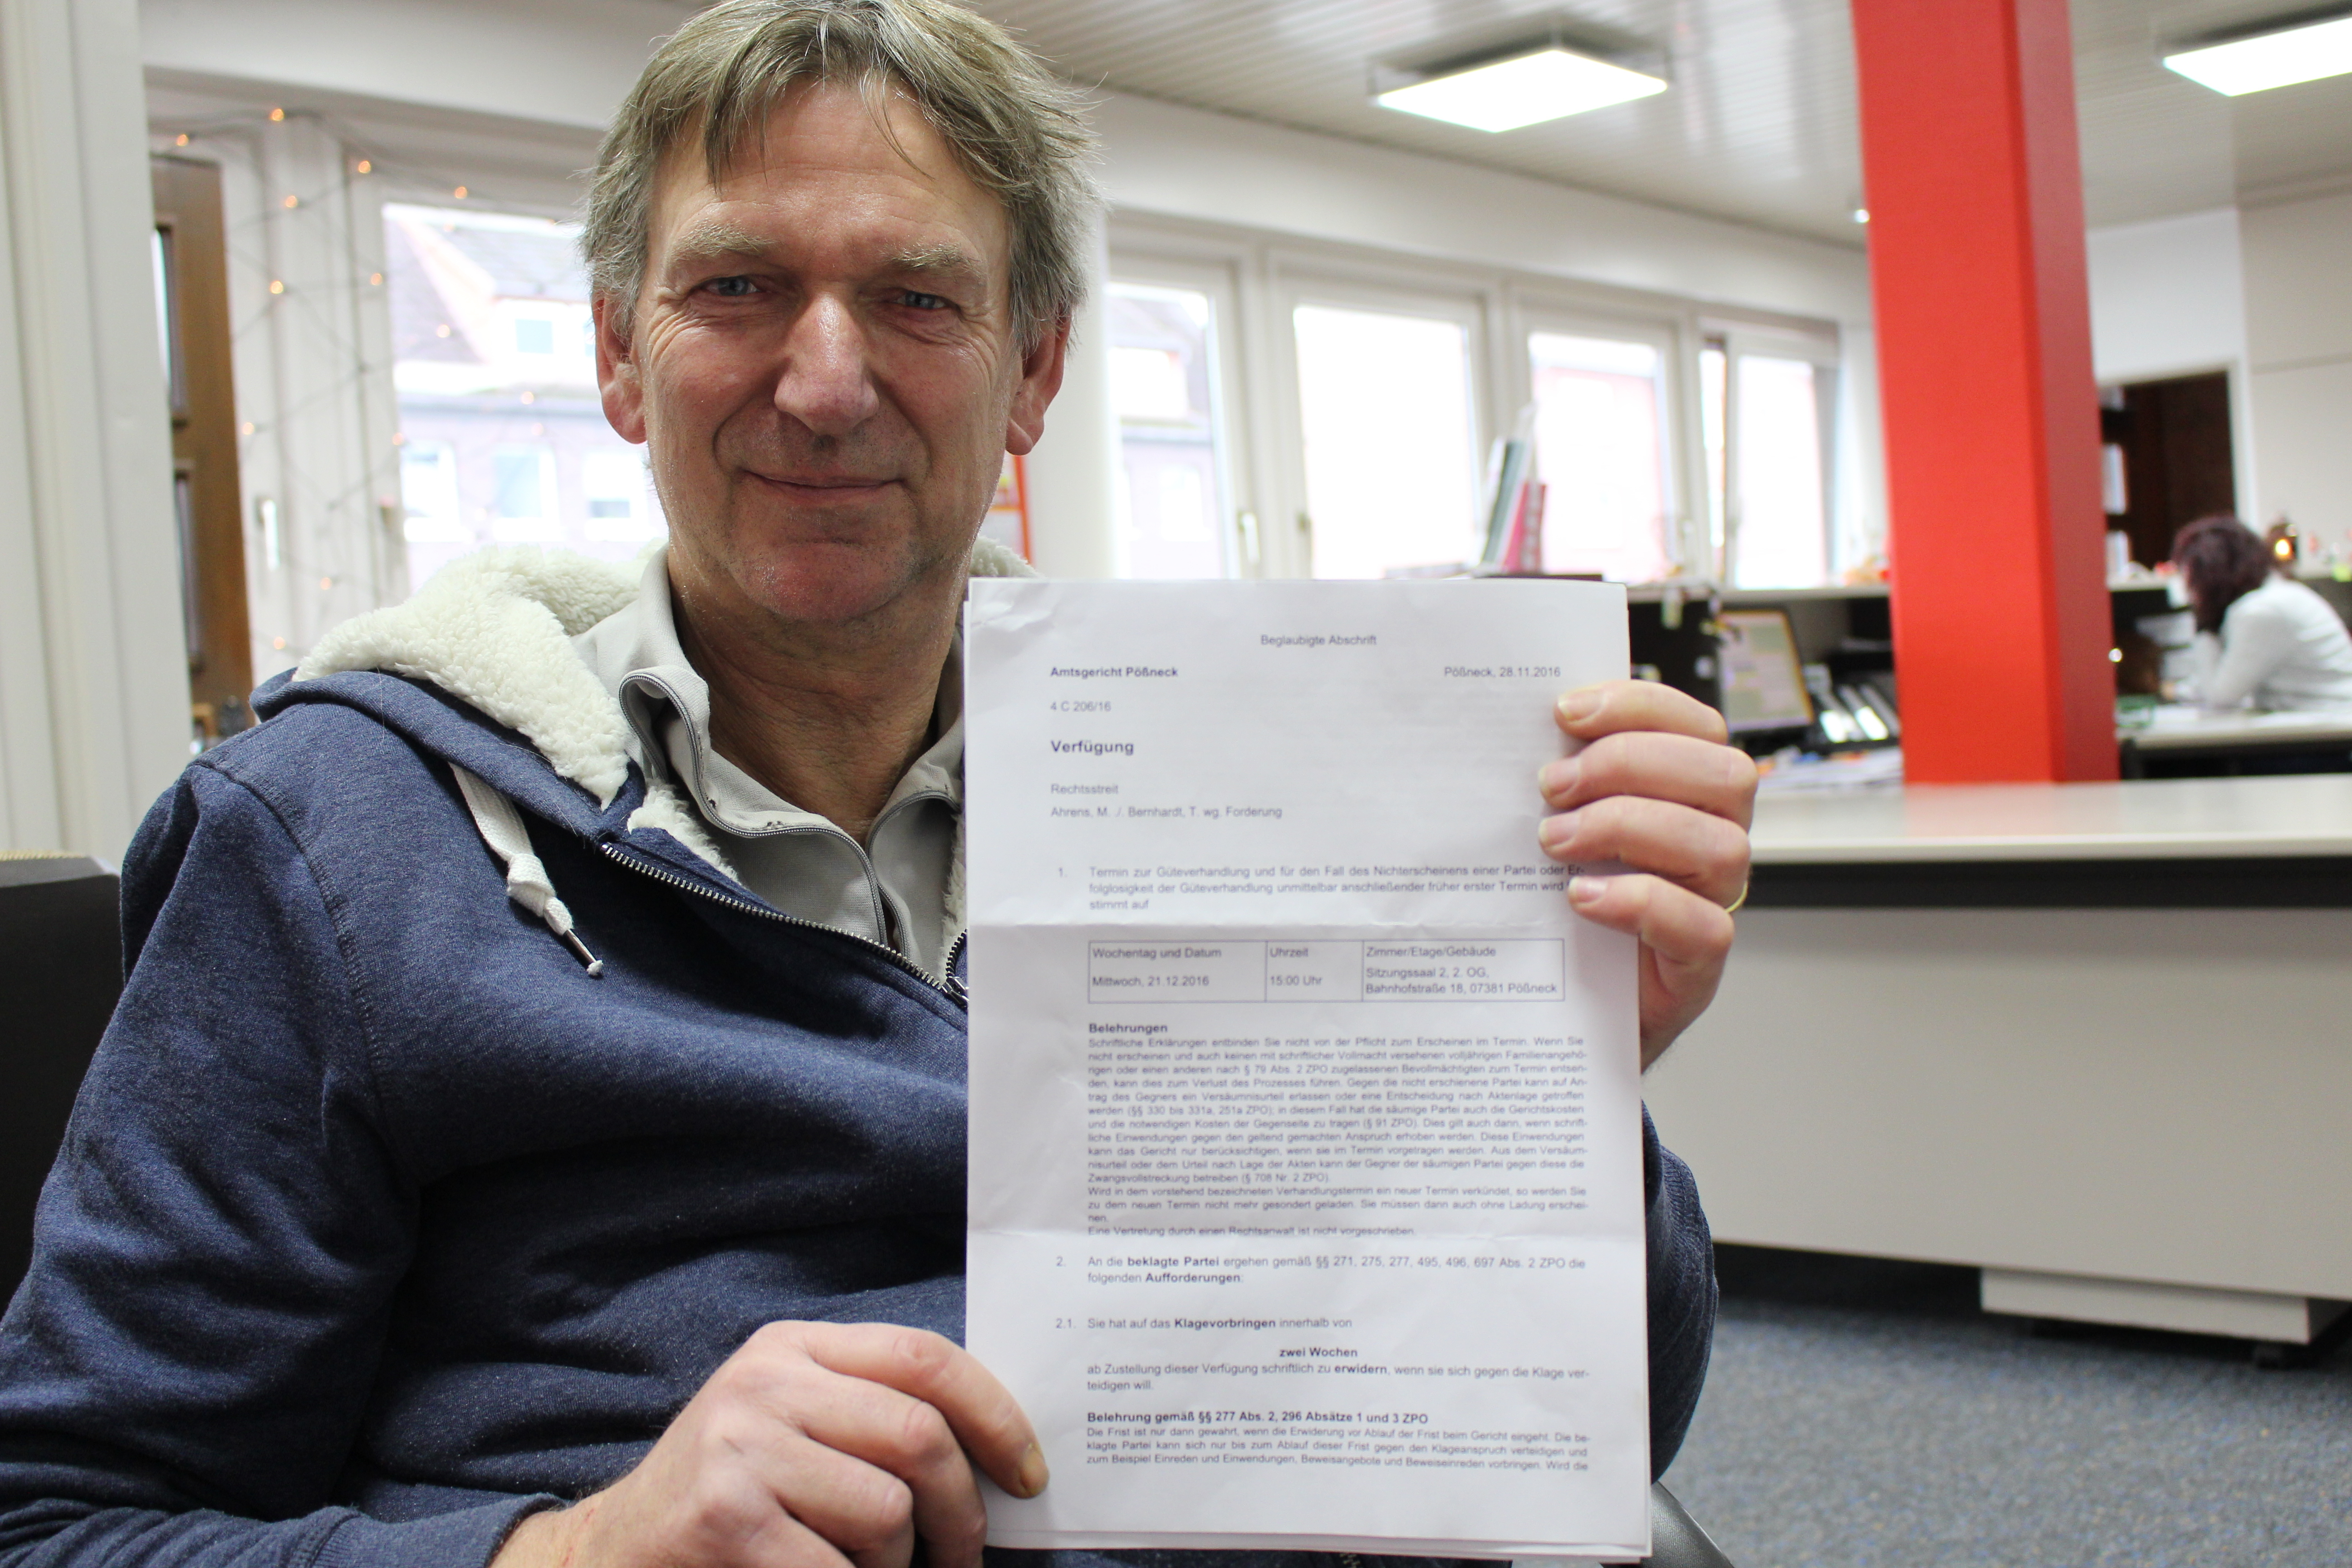 Beglaubigte Abschrift
Amtsgericht Pößneck
Pößneck, 28.11.2016
4 C 206/16
Verfügung
Rechtsstreit
Ahrens, M. ./. Bernhardt, T. wg. Forderung
1. Termin zur Güteverhandlung und für den Fall des Nichterscheinens einer Partei oder Er-
folglosigkeit der Güteverhandlung unmittelbar anschließender früher erster Termin wird
stimmt auf
Wochentag und Datum Uhrzeit Zimmer/Etage/Gebäude
Mittwoch, 21.12.2016 15:00 Uhr Sitzungssaal 2, 2. OG,
Bahnhofstraße 18, 07381 Pößneck
Belehrungen
Schriftliche Erklärungen entbinden Sie nicht von der Pflicht zum Erscheinen im Termin. Wenn Sie
nicht erscheinen und auch keinen mit schriftlicher Vollmacht versehenen volljährigen Familienangehö-
rigen oder einen anderen nach § 79 Abs. 2 ZPO zugelassenen Bevollmächtigten zum Termin entsen-
den, kann dies zum Verlust des Prozesses führen. Gegen die nicht erschienene Partei kann auf An-
trag des Gegners ein Versäumnisurteil erlassen oder eine Entscheidung nach Aktenlage getroffen
werden (§§ 330 bis 331a, 251a ZPO); in diesem Fall hat die säumige Partei auch die Gerichtskosten
und die notwendigen Kosten der Gegenseite zu tragen (§ 91 ZPO). Dies gilt auch dann, wenn schrift-
liche Einwendungen gegen den geltend gemachten Anspruch erhoben werden. Diese Einwendungen
kann das Gericht nur berücksichtigen, wenn sie im Termin vorgetragen werden. Aus dem Versäum-
nisurteil oder dem Urteil nach Lage der Akten kann der Gegner der säumigen Partei gegen diese die
Zwangsvollstreckung betreiben (§ 708 Nr. 2 ZPO).
Wird in dem vorstehend bezeichneten Verhandlungstermin ein neuer Termin verkündet, so werden Sie
zu dem neuen Termin nicht mehr gesondert geladen. Sie müssen dann auch ohne Ladung erschei-
nen.
Eine Vertretung durch einen Rechtsanwalt ist nicht vorgeschrieben.
2. An die beklagte Partei ergehen gemäß §§ 271, 275, 277, 495, 496, 697 Abs. 2 ZPO die
folgenden Aufforderungen:
2.1. Sie hat auf das Klagevorbringen innerhalb von
zwei Wochen
ab Zustellung dieser Verfügung schriftlich zu erwidern, wenn sie sich gegen die Klage ver-
teidigen will.
Belehrung gemäß §§ 277 Abs. 2, 296 Absätze 1 und 3 ZPO
Die Frist ist nur dann gewahrt, wenn die Erwiderung vor Ablauf der Frist beim Gericht eingeht. Die be-
klagte Partei kann sich nur bis zum Ablauf dieser Frist gegen den Klageanspruch verteidigen und
zum Beispiel Einreden und Einwendungen, Beweisangebote und Beweiseinreden vorbringen. Wird die